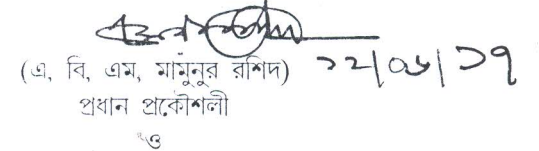 (এ, বি, এম, মামুনুর রশিদ) ১২/০৬/১৭
প্রধান প্রকৌশলী
ও